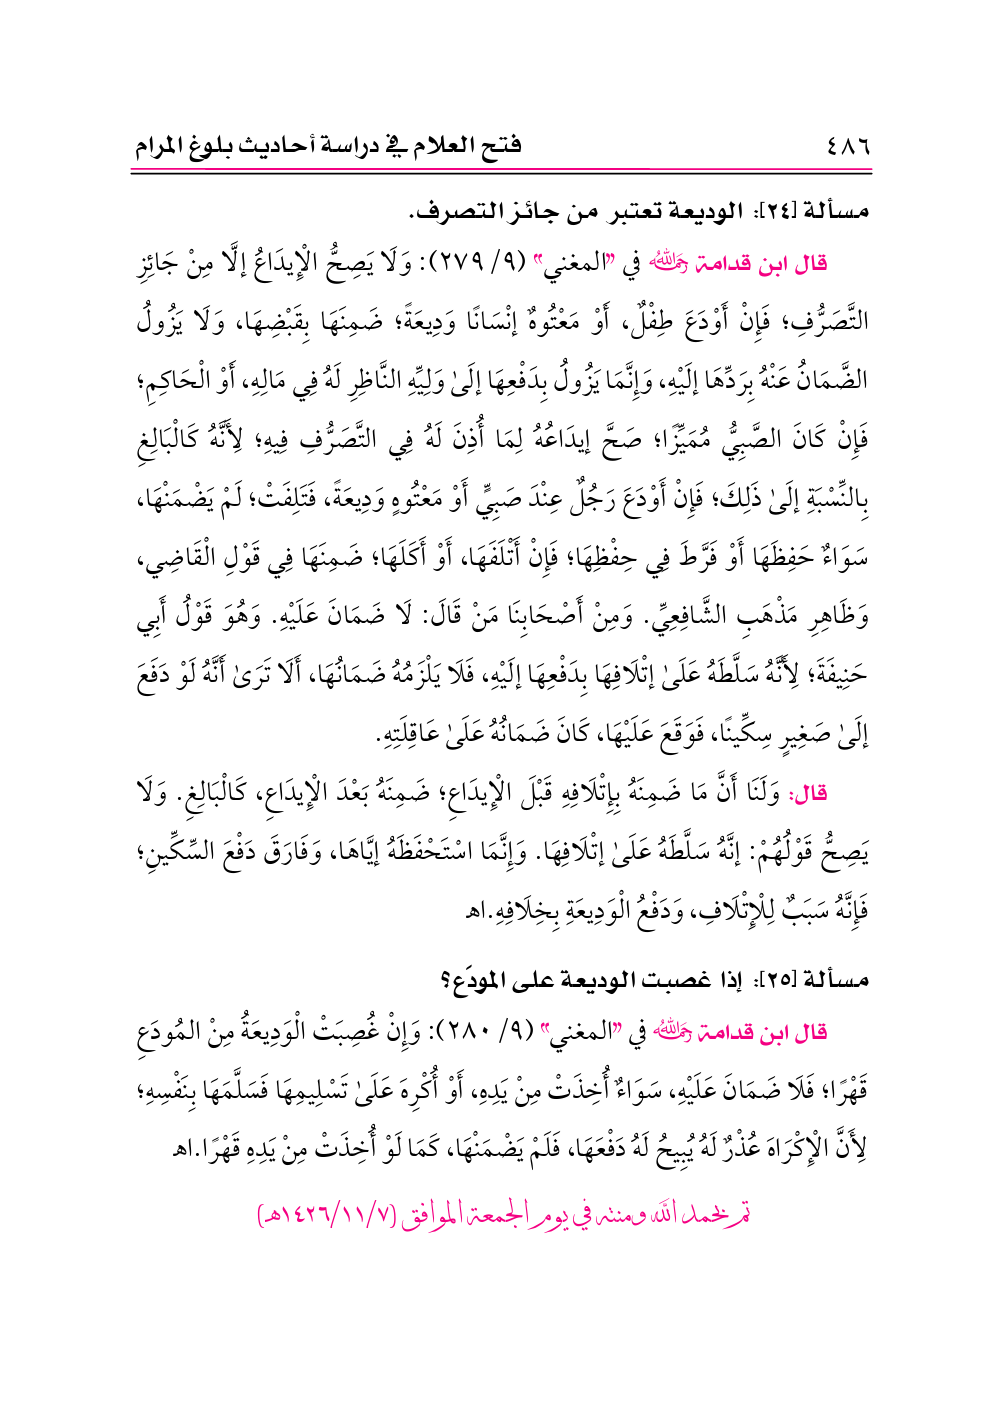 ٤٨٦ فتح العلام في دراسة أحاديث بلوغ المرام
مسألة [٢٤]: الوديعة تعتبر من جائز التصرف.
قال ابن قدامة رَحِمَهُ اللهُ في "المغني" (٩/ ٢٧٩): وَلَا يَصِحُّ الْإِيدَاعُ إلَّا مِنْ جَائِزِ
التَّصَرُّفِ؛ فَإِنْ أَوْدَعَ طِفْلٌ، أَوْ مَعْتُوهٌ إنْسَانًا وَدِيعَةً؛ ضَمِنَهَا بِقَبْضِهَا، وَلَا يَزُولُ
الضَّمَانُ عَنْهُ بِرَدِّهَا إلَيْهِ، وَإِنَّمَا يَزُولُ بِدَفْعِهَا إلَىٰ وَلِيِّهِ النَّاظِرِ لَهُ فِي مَالِهِ، أَوْ الْحَاكِمِ؛
فَإِنْ كَانَ الصَّبِيُّ مُمَيِّزًا؛ صَحَّ إيدَاعُهُ لِمَا أُذِنَ لَهُ فِي التَّصَرُّفِ فِيهِ؛ لِأَنَّهُ كَالْبَالِغِ
بِالنِّسْبَةِ إلَىٰ ذَلِكَ؛ فَإِنْ أَوْدَعَ رَجُلٌ عِنْدَ صَبِيٍّ أَوْ مَعْتُوهٍ وَدِيعَةً، فَتَلِفَتْ؛ لَمْ يَضْمَنْهَا،
سَوَاءٌ حَفِظَهَا أَوْ فَرَّطَ فِي حِفْظِهَا؛ فَإِنْ أَتْلَفَهَا، أَوْ أَكَلَهَا؛ ضَمِنَهَا فِي قَوْلِ الْقَاضِي،
وَظَاهِرِ مَذْهَبِ الشَّافِعِيِّ. وَمِنْ أَصْحَابِنَا مَنْ قَالَ: لَا ضَمَانَ عَلَيْهِ. وَهُوَ قَوْلُ أَبِي
حَنِيفَةَ؛ لِأَنَّهُ سَلَّطَهُ عَلَىٰ إتْلَافِهَا بِدَفْعِهَا إلَيْهِ، فَلَا يَلْزَمُهُ ضَمَانُهَا، أَلَا تَرَىٰ أَنَّهُ لَوْ دَفَعَ
إلَىٰ صَغِيرٍ سِكِّينًا، فَوَقَعَ عَلَيْهَا، كَانَ ضَمَانُهُ عَلَىٰ عَاقِلَتِهِ.
قال: وَلَنَا أَنَّ مَا ضَمِنَهُ بِإِتْلَافِهِ قَبْلَ الْإِيدَاعِ؛ ضَمِنَهُ بَعْدَ الْإِيدَاعِ، كَالْبَالِغِ. وَلَا
يَصِحُّ قَوْلُهُمْ: إنَّهُ سَلَّطَهُ عَلَىٰ إتْلَافِهَا. وَإِنَّمَا اسْتَحْفَظَهُ إيَّاهَا، وَفَارَقَ دَفْعَ السِّكِّينِ؛
فَإِنَّهُ سَبَبٌ لِلْإِتْلَافِ، وَدَفْعُ الْوَدِيعَةِ بِخِلَافِهِ.اﻫ
مسألة [٢٥]: إذا غصبت الوديعة على المودَع؟
قال ابن قدامة رَحِمَهُ اللهُ في "المغني" (٩/ ٢٨٠): وَإِنْ غُصِبَتْ الْوَدِيعَةُ مِنْ المُودَعِ
قَهْرًا؛ فَلَا ضَمَانَ عَلَيْهِ، سَوَاءٌ أُخِذَتْ مِنْ يَدِهِ، أَوْ أُكْرِهَ عَلَىٰ تَسْلِيمِهَا فَسَلَّمَهَا بِنَفْسِهِ؛
لِأَنَّ الْإِكْرَاهَ عُذْرٌ لَهُ يُبِيحُ لَهُ دَفْعَهَا، فَلَمْ يَضْمَنْهَا، كَمَا لَوْ أُخِذَتْ مِنْ يَدِهِ قَهْرًا.اﻫ
تم بحمد الله ومنته في يوم الجمعة الموافق (١٤٢٦/١١/٧هـ)